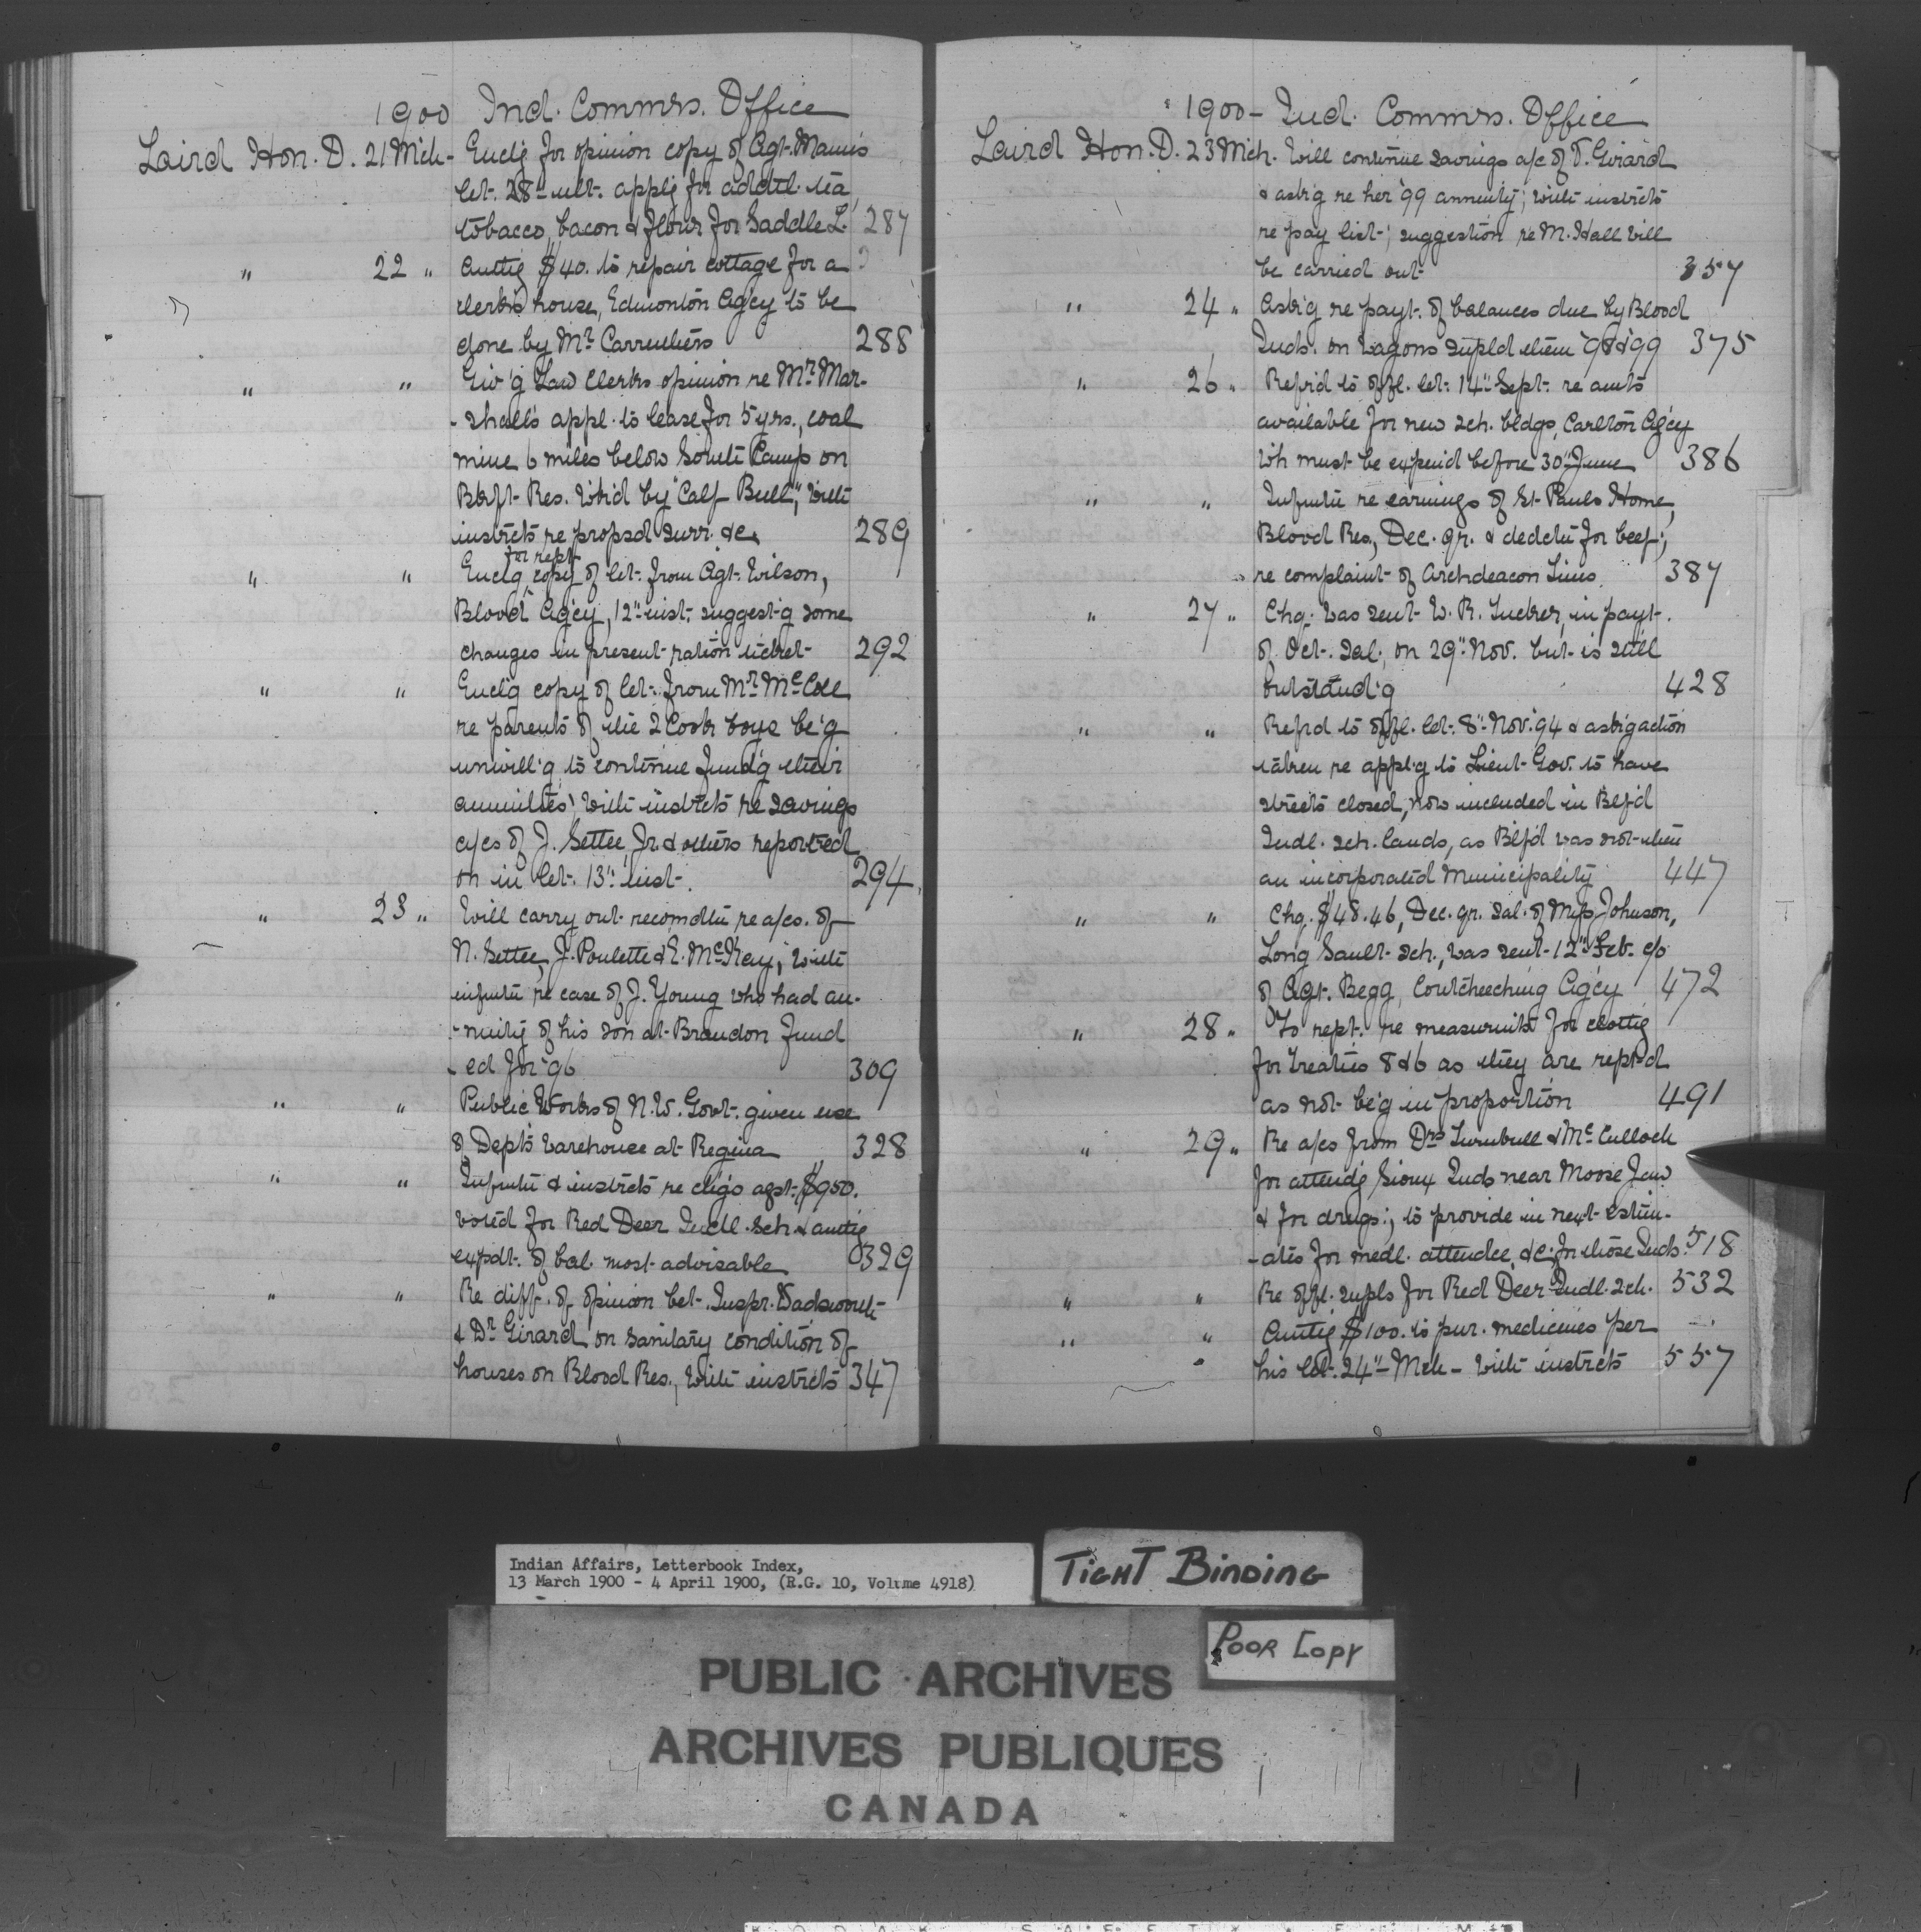 1900 Ind. Commrs. Office
Laird Hon. D. 21 Mch - Enclg for opinion copy of Agt. Mann's
let. 28" ult. applg for addtl. tea,
tobacco, bacon & flour for Saddle L. 287
" 22 " Authg $40. to repair cottage for a
clerk's house, Edmonton Agcy to be
done by Mr. Carruthers 288
" " Giv'g Law Clerks opinion re Mr. Mar-
-shall's appl. to lease for 5 yrs., coal
mine 6 miles below South Camp on
Blkft Res. Wk'd by "Calf Bull", with
instrcts re propsd surr. &c. 289
for rept
" " Enclg copy of let. from Agt. Wilson,
Blood Agcy, 12" inst. suggest'g some
changes in present ration ticket 292
" " Encl'g copy of let. from Mr. McColl
re parents of the 2 Cook boys be'g
unwill'g to continue fund'g their
annuities; with instrcts re savings
a/cs of J. Settee, Jr. & others reported
on in let. 13" inst. 294
" 23 " Will carry out recomdtn re a/cs. of
N. Settee, J. Poulette & E. McKay; with
infmtn re case of J. Young who had an-
-nuity of his son at Brandon fund
-ed for '96 309
" " Public Works of N.W. Govt. given use
of Dept's warehouse at Regina 328
" " Infmtn & instrcts re chgs agst. $950.
voted for Red Deer Indl. Sch. & authg
expdt. of bal. most advisable 329
" " Re diff. of opinion bet. Inspr. Wadsworth
& Dr Girard on sanitary condition of
houses on Blood Res., with instrcts 347
1900 - Ind. Commrs. Office
Laird Hon. D. 23 Mch. Will continue savings a/c of V. Girard
& ask'g re her '99 annuity; with instrcts
re pay list; suggestion re M. Hall will
be carried out 357
" 24 " Ask'g re payt. of balances due by Blood
Inds. on wagons suppld them '98 & '99 375
" 26 " Refr'd to offl. let. 14" Sept. re amts
available for new sch. bldgs, Carlton Agcy
wh must be expend before 30" June 386
" " Infmtn re earnings of St. Pauls Home,
Blood Res., Dec. qr. & dedctn for beef;
re complaint of Archdeacon Tims. 387
" 27 " Chq. was sent W. R. Tucker, in payt.
of Oct. Sal., on 29" Nov. but is still
outstand'g 428
" " Refrd to offl. let. 8" Nov. '94 & ask'g action
taken re appl'g to Lieut. Gov. to have
streets closed, now included in Btlf'd
Indl. sch. lands, as Btlf'd was not then
an incorporated Municipality 447
" " Chq. $48.46, Dec. qr. sal. of Miss Johnson,
Long Sault sch., was sent 12" Feb. c/o
of Agt. Begg, Coutcheeching Agcy 472
" 28 " To rept. re measurmts for clothg
for Treaties 8 & 6 as they are rept'd
as not be'g in proportion 491
" 29 " Re a/cs from Drs Turnbull & McCulloch
for attendg Sioux Inds near Moose Jaw
& for drugs; to provide in next estim-
-ates for medl. attendce, &c. for those Inds. 518
" " Re offl. supls for Red Deer Indl. sch. 532
" " Authg $100. to pur. medicines per
his let. 24" Mch - with instrcts 557
Indian Affairs, Letterbook Index,
13 March 1900 - 4 April 1900, (R.G. 10, Volume 4918)
TIGHT BINDING
POOR COPY
PUBLIC ARCHIVES
ARCHIVES PUBLIQUES
CANADA